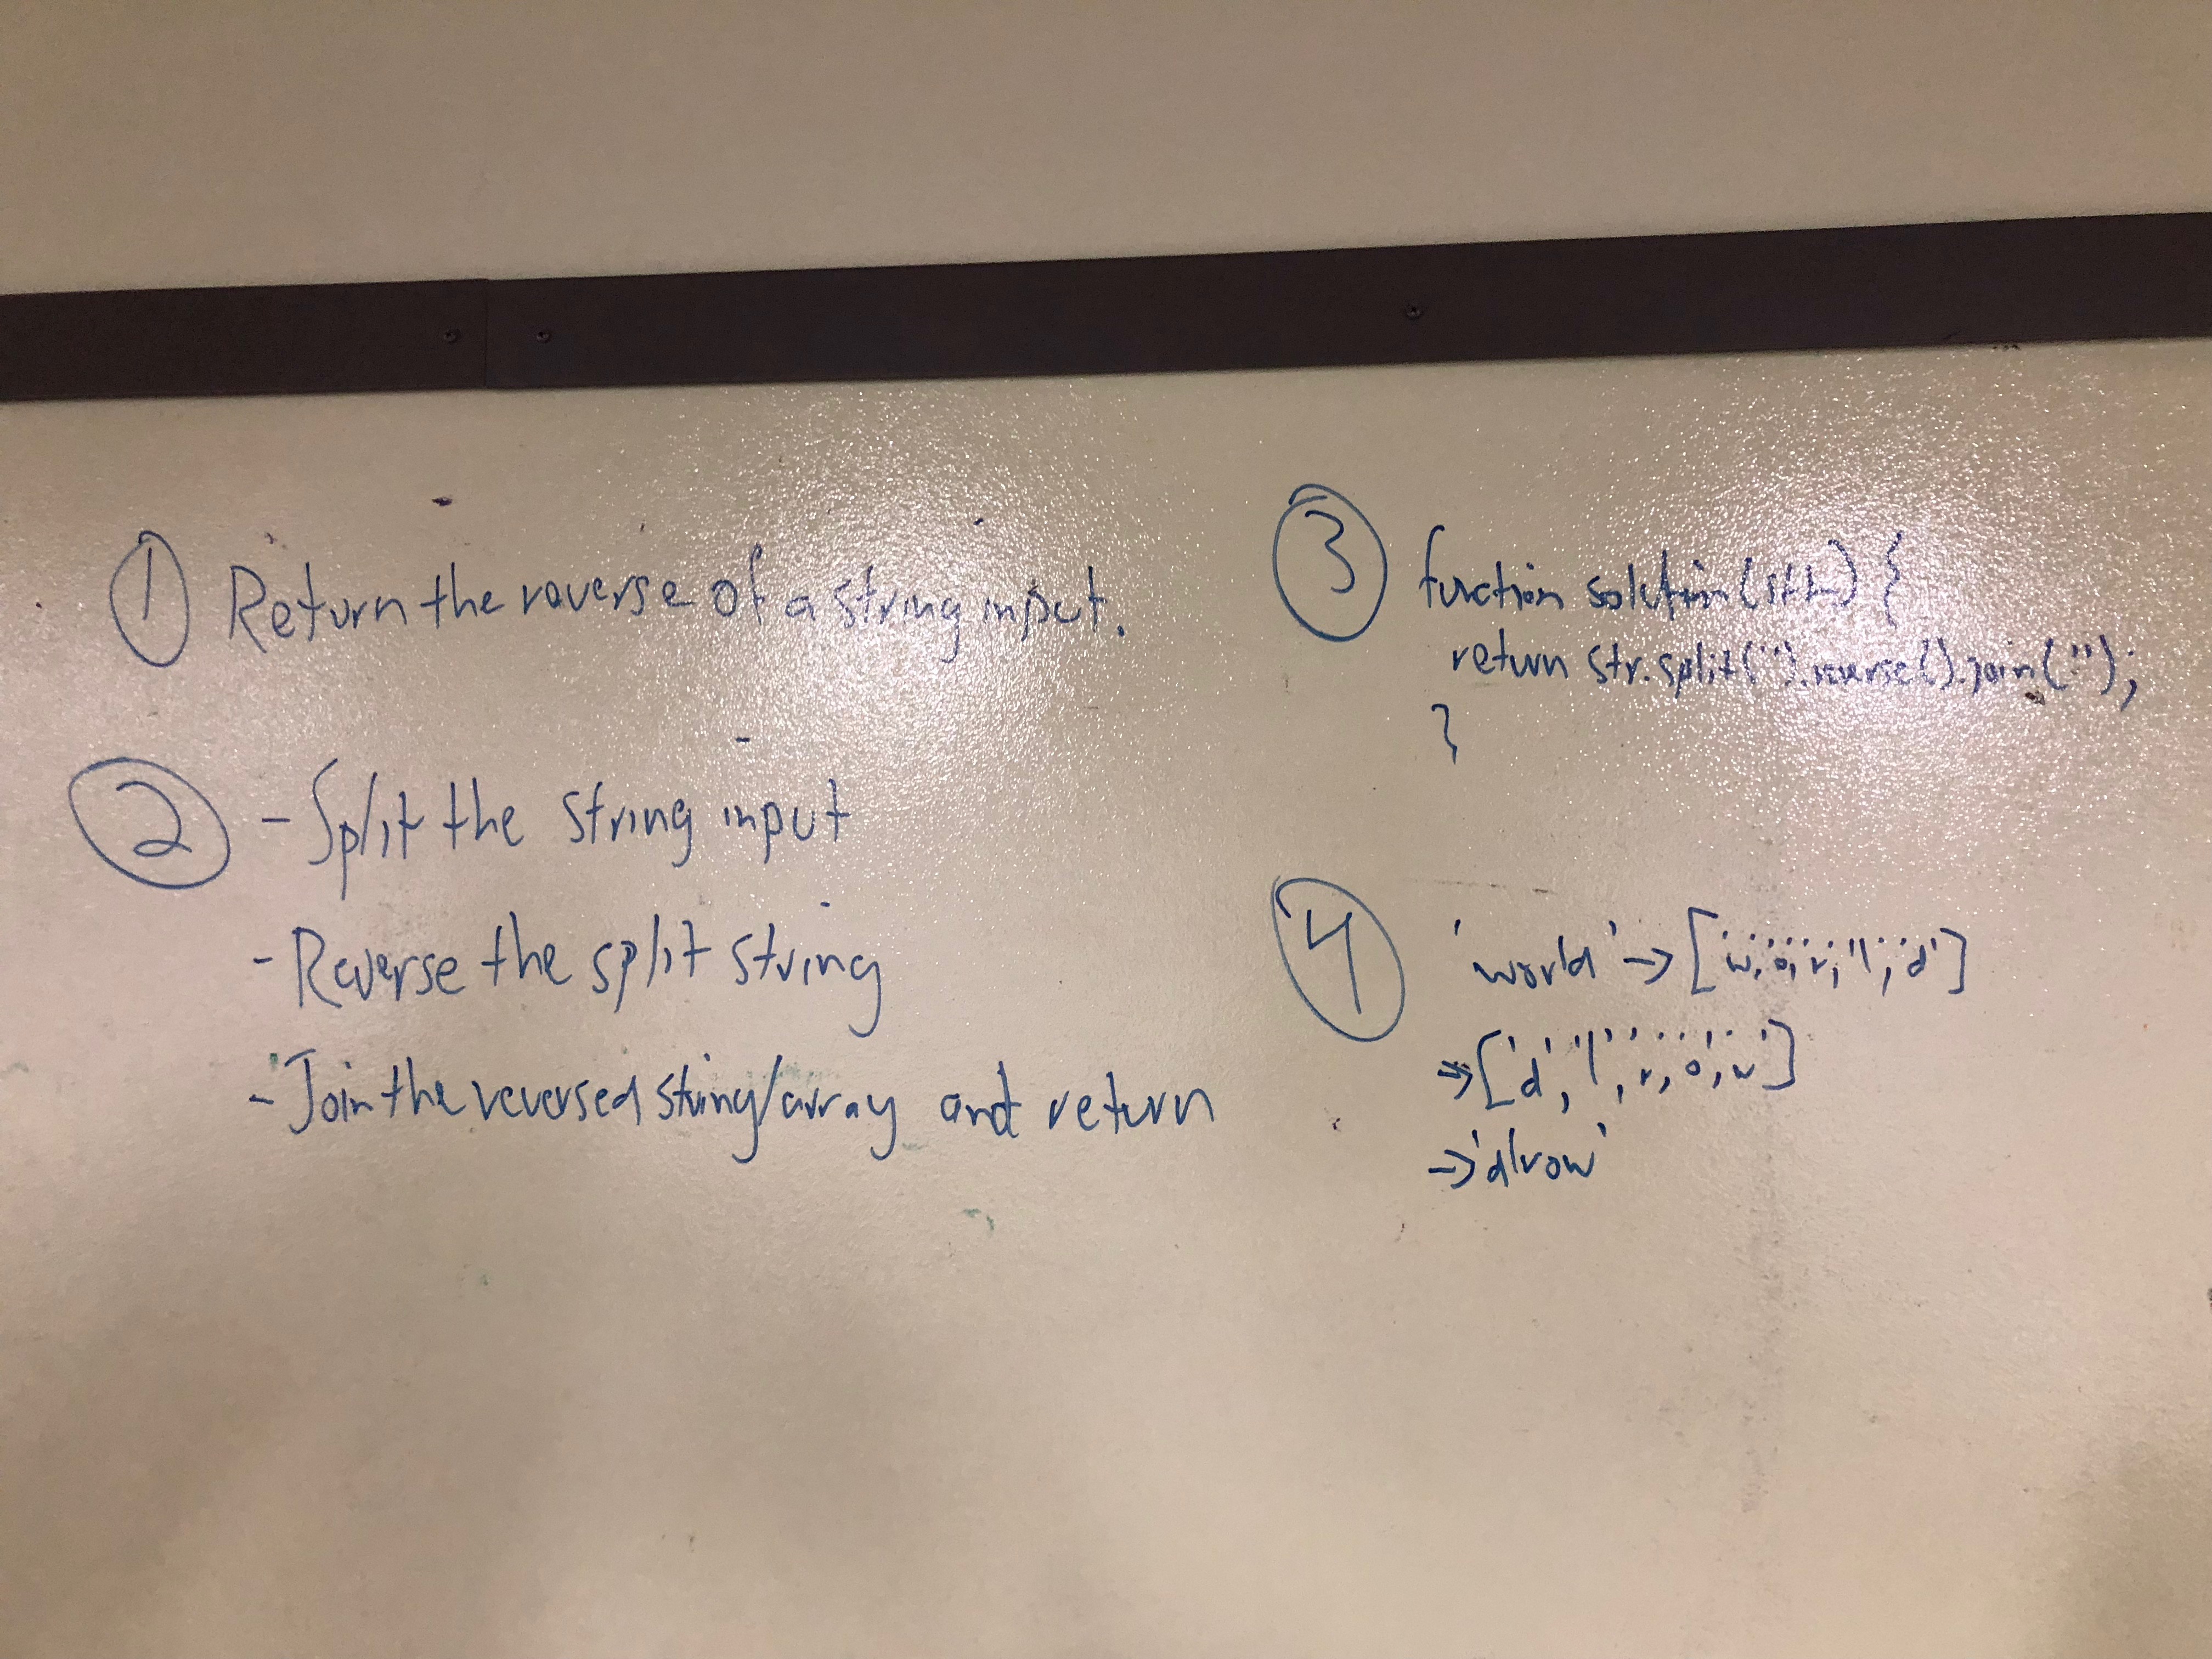 ① Return the reverse of a string input.
② - Split the string input
- Reverse the split string
- Join the reversed string/array and return
③ function solution(str) {
return str.split('').reverse().join('');
}
④ 'world' → ['w','o','r','l','d']
→ ['d','l','r','o','w']
→ 'dlrow'